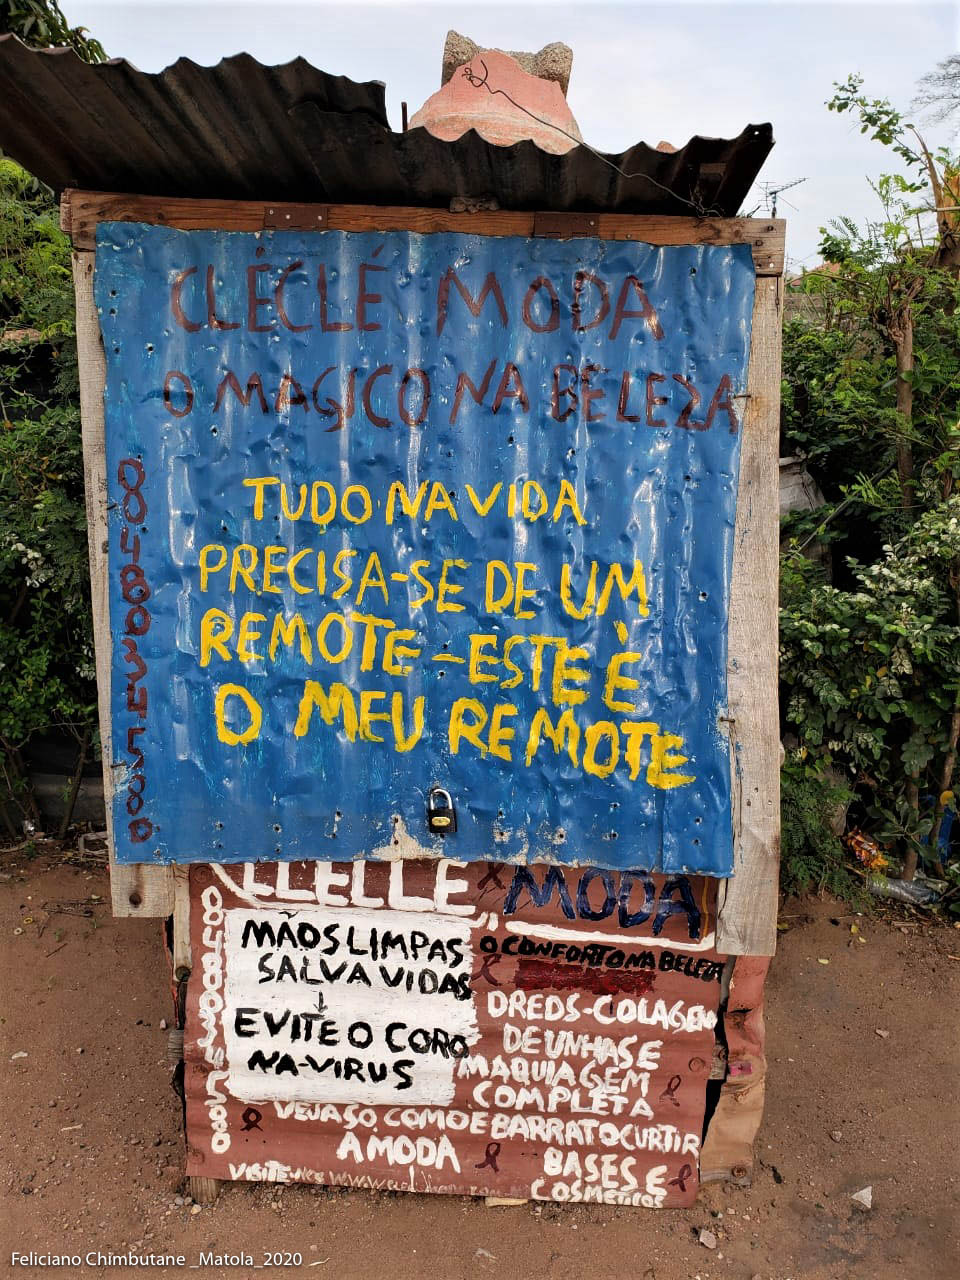 CLÉCLÉ MODA
O MAGICO NA BELEZA
TUDO NA VIDA
PRECISA-SE DE UM
REMOTE - ESTE É
O MEU REMOTE
CLECLE MODA
MÃOS LIMPAS
SALVA VIDAS
↓
EVITE O CORO
NA-VIRUS
O CONFORTO NA BELEZA
DREDS-COLAGEM
DE UNHAS E
MAQUIAGEM
COMPLETA
VEJA SÓ COMO E BARRATO CURTIR
A MODA
BASES E
COSMETICOS
VISITE-NOS
Feliciano Chimbutane _Matola_2020